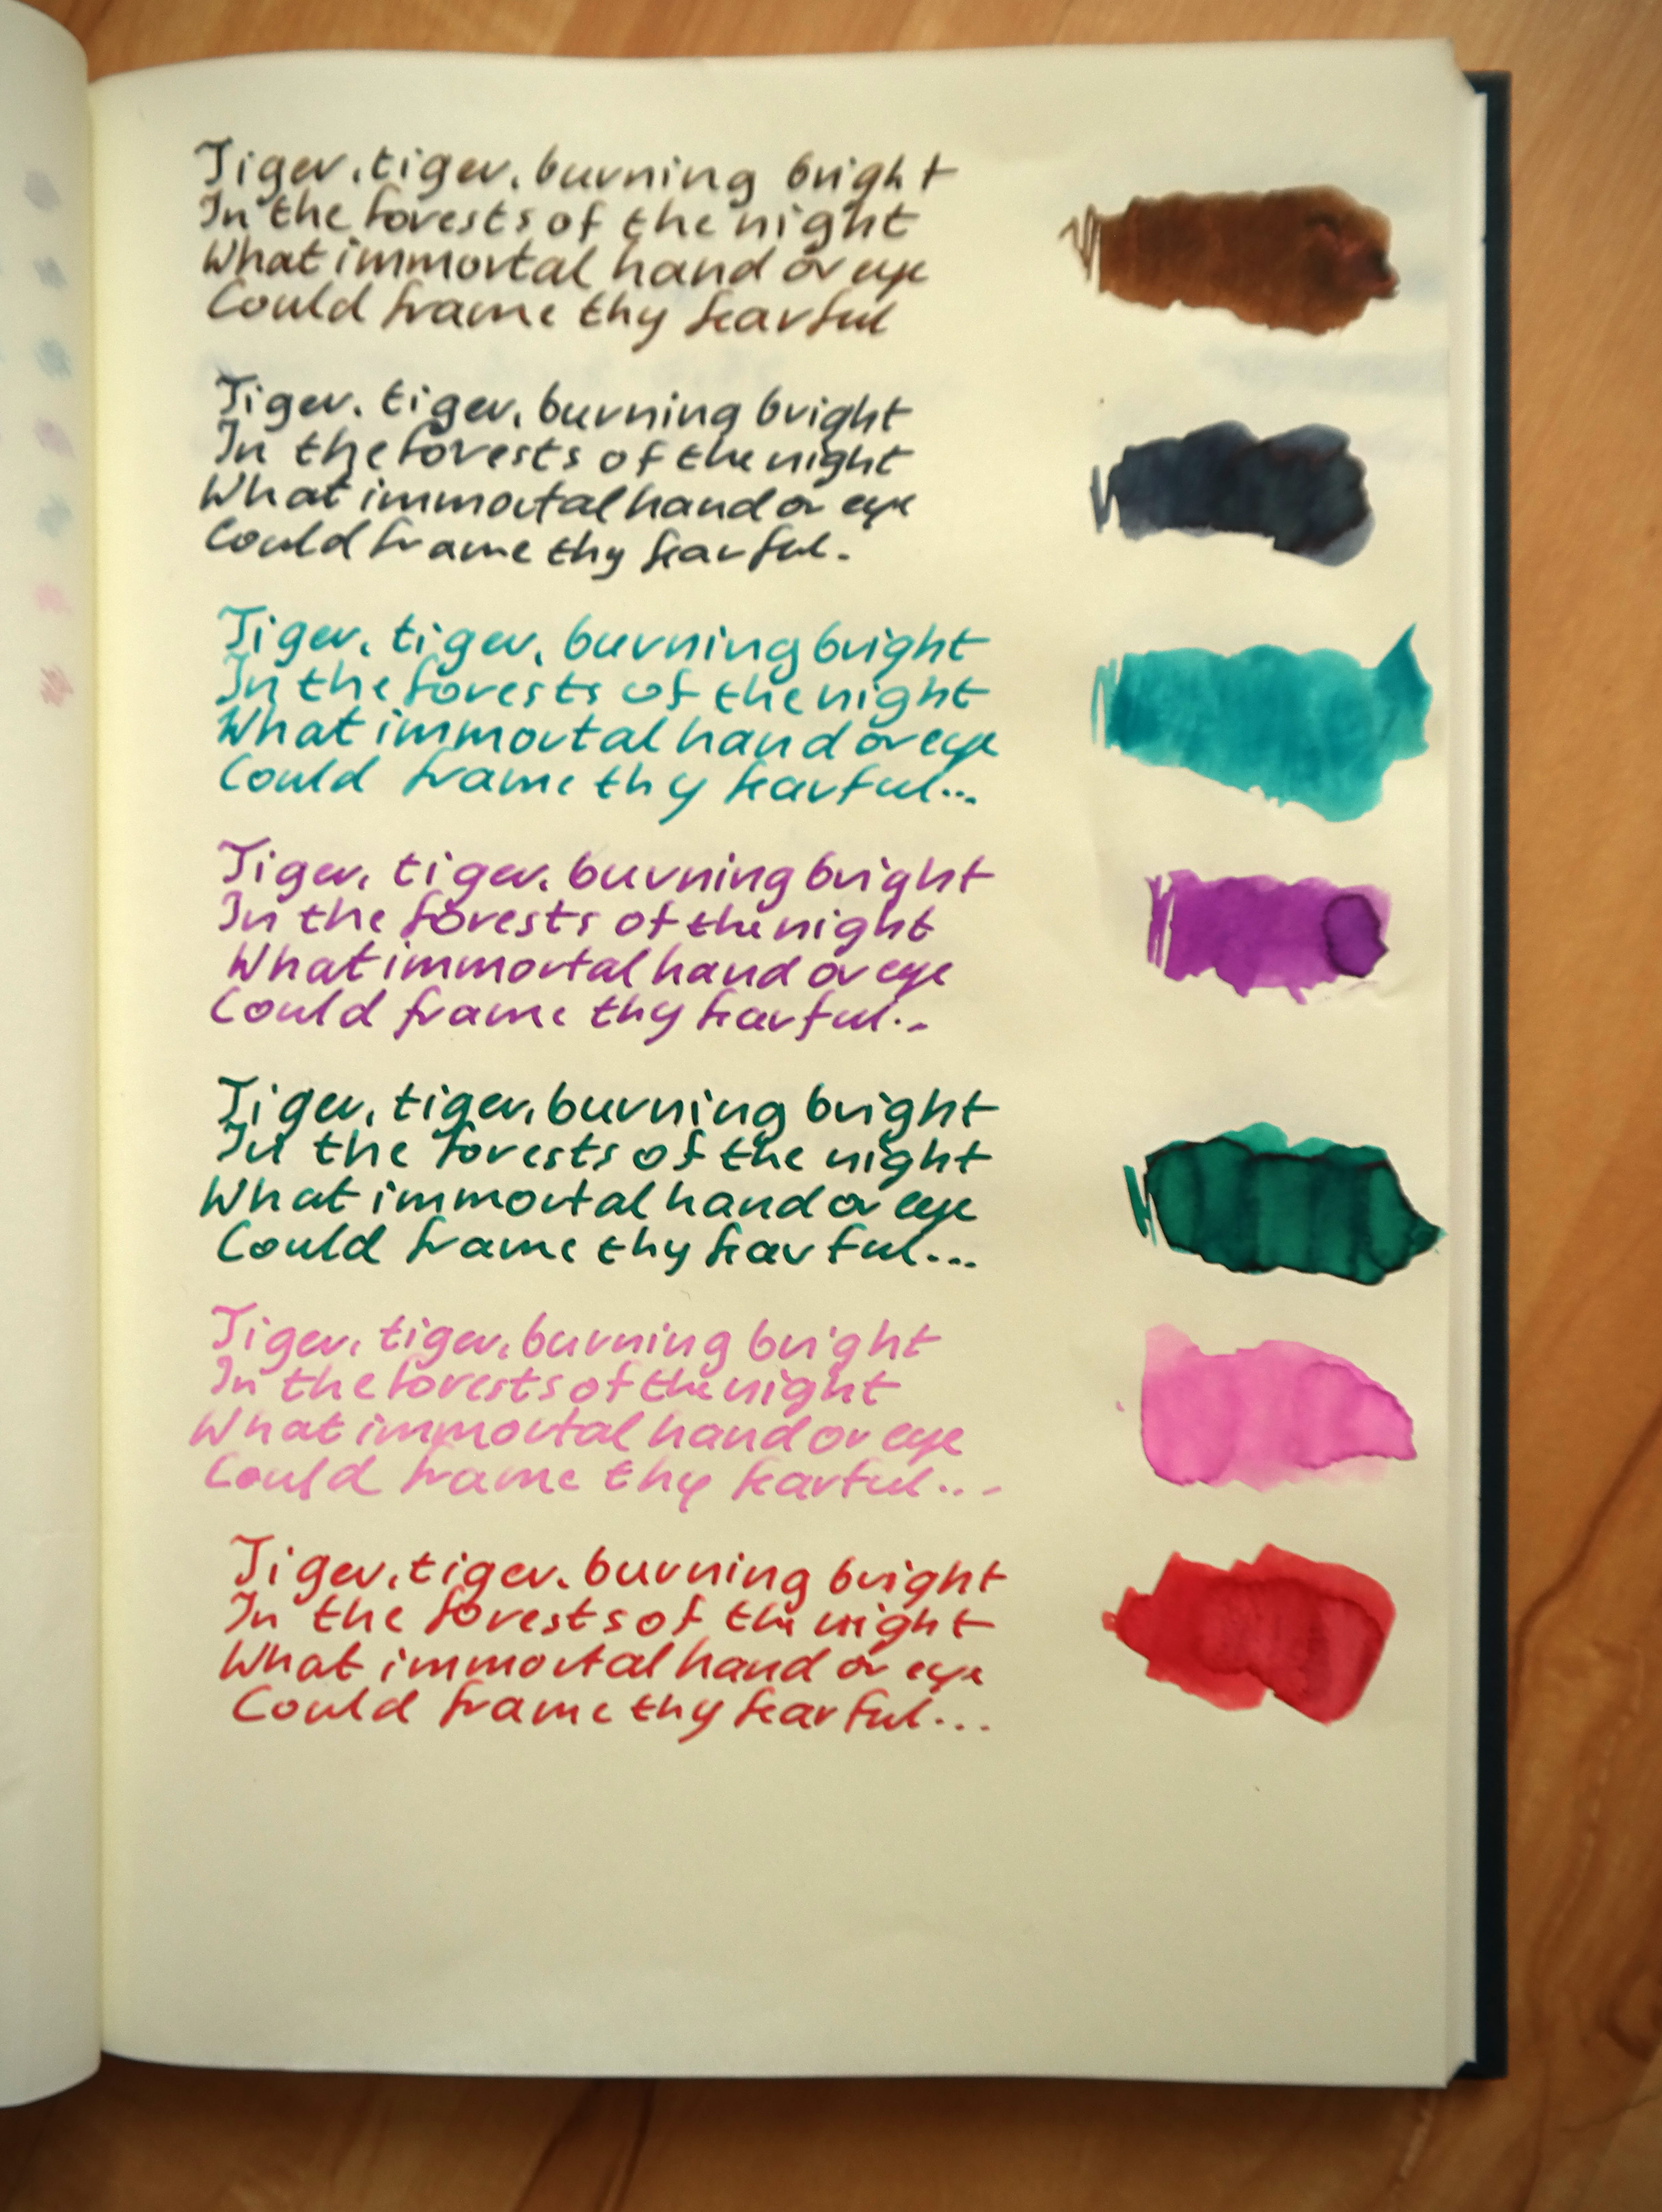 Tiger, tiger, burning bright
In the forests of the night
What immortal hand or eye
Could frame thy fearful
Tiger, tiger, burning bright
In the forests of the night
What immortal hand or eye
Could frame thy fearful..
Tiger, tiger, burning bright
In the forests of the night
What immortal hand or eye
Could frame thy fearful...
Tiger, tiger, burning bright
In the forests of the night
What immortal hand or eye
Could frame thy fearful...
Tiger, tiger, burning bright
In the forests of the night
What immortal hand or eye
Could frame thy fearful...
Tiger, tiger, burning bright
In the forests of the night
What immortal hand or eye
Could frame thy fearful...
Tiger, tiger, burning bright
In the forests of the night
What immortal hand or eye
Could frame thy fearful...